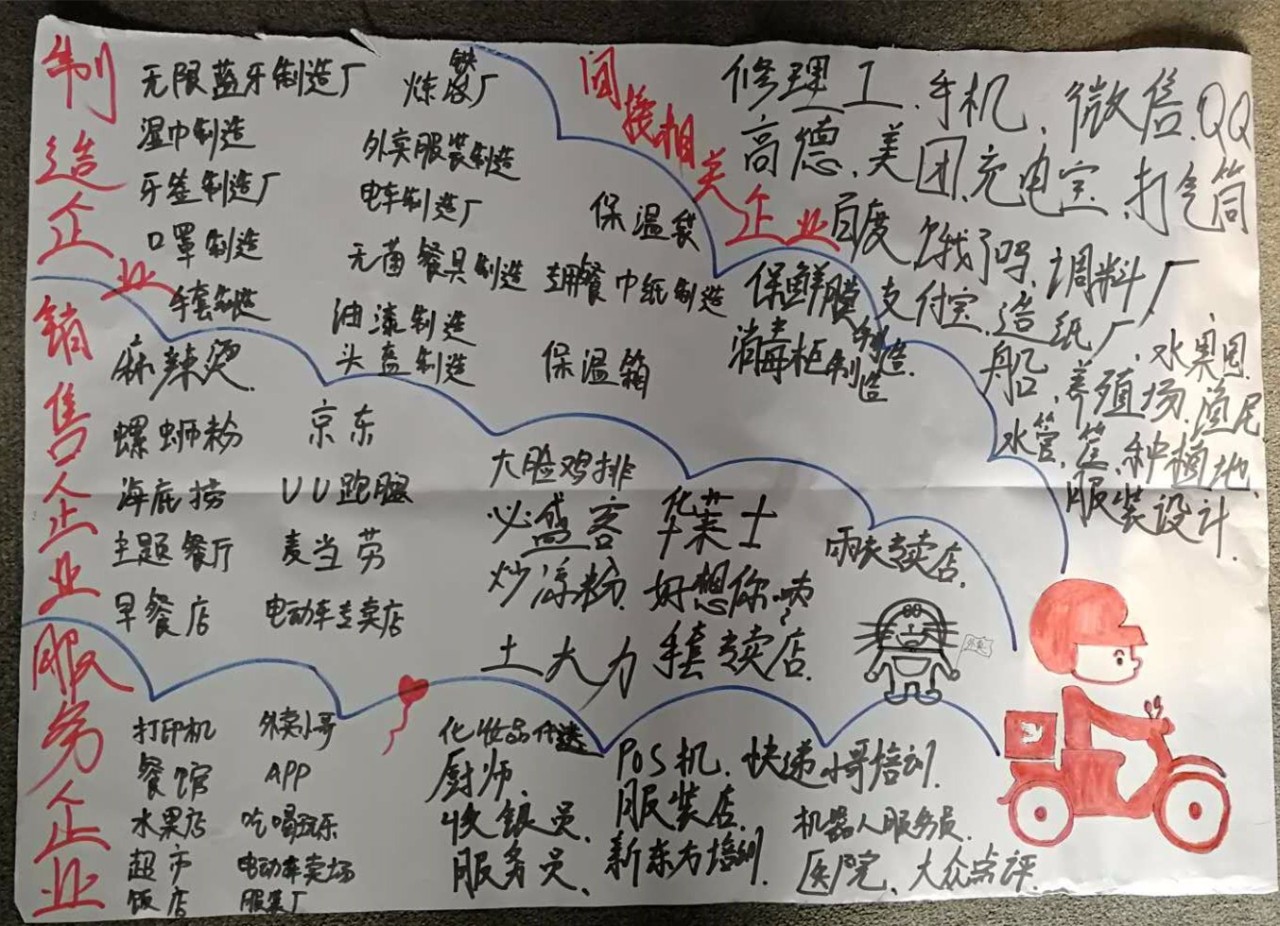 制造企业
无限蓝牙制造厂
湿巾制造
牙签制造厂
口罩制造
手套制造
炼铁厂
外卖服装制造
电车制造厂
无菌餐具制造
油漆制造
头盔制造
保温袋
专用餐巾纸制造
保温箱
保鲜膜制造.
消毒柜制造
间接相关企业
修理工、手机、微信、QQ
高德、美团、充电宝、打气筒
百度、饿了吗、调料厂
支付宝、造纸厂
船、养殖场、渔尼
水果园.
水管、筐、种植地.
服装设计.
销售企业
麻辣烫
螺蛳粉
海底捞
主题餐厅
早餐店
京东
UU跑腿
麦当劳
电动车专卖店
大脸鸡排
必盛客 华莱士
炒凉粉. 好想你
土大力 手套专卖店.
雨衣专卖店.
外卖
服务企业
打印机
餐馆
水果店
超市
饭店
外卖小哥
APP
吃喝玩乐
电动车卖场
服装厂
化妆品
厨师.
收银员.
服务员.
POS机、快递小哥培训.
服装店.
新东方培训.
机器人服务员.
医院、大众点评.